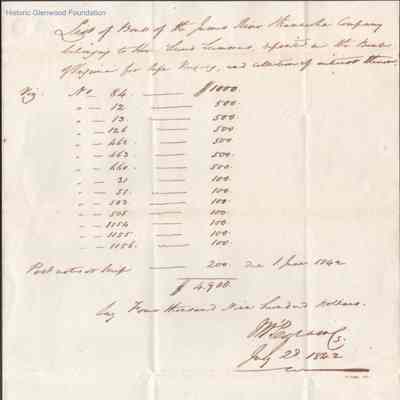 Historic Glenwood Foundation
List of Bonds of the James River Kanawha Company
belonging to, deposited in the Bank
of Virginia for safe keeping, and collection of interest thereon.
Viz: No — 84. — $1000.
" — 12 — 500.
" — 13. — 500.
" — 126 — 500.
" — 462. — 500.
" — 663 — 500.
" — 660. — 500.
" — 21 — 100.
" — 51. — 100.
" — 503 — 100.
" — 505. — 100.
" — 1154 — 100.
" — 1155 — 100.
" — 1156. — 100.
Post notes or Scrip — 200. due 1 June 1842
$ 4.900.
Say Four thousand Nine hundred dollars.
July 28 1842